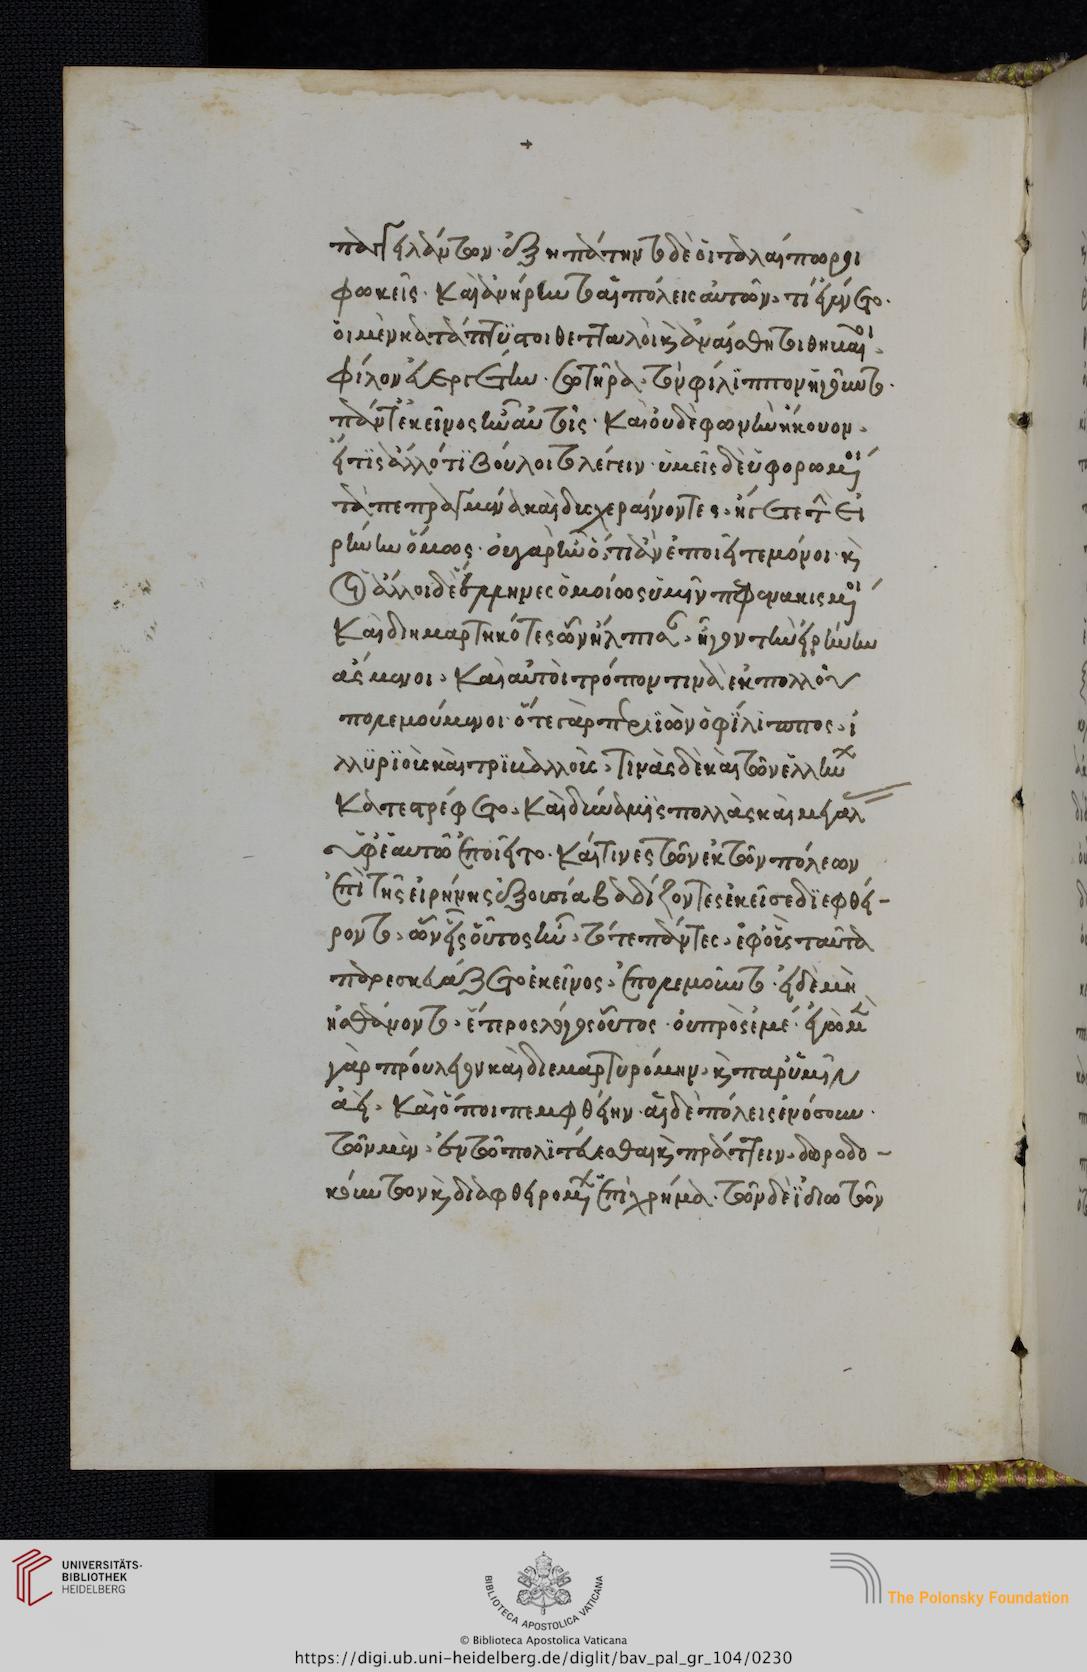 παγγειλάντων· ἐξηπάτηντο δὲ οἱ ταλαίπωροι
φωκεῖς· καὶ ἀνήρηντο αἱ πόλεις αὐτῶν, τί ἐγένετο·
οἱ μὲν κατάπτυστοι θετταλοὶ καὶ ἀναίσθητοι θηβαῖοι,
φίλον εὐεργέτην· σωτῆρα, τὸν φίλιππον ἡγοῦντο·
πάντ' ἐκεῖνος ἦν αὐτοῖς· καὶ οὐδὲ φωνὴν ἤκουον,
εἴ τις ἄλλό τι βούλοιτο λέγειν· ὑμεῖς δὲ ὑφορώμενοι
τὰ πεπραγμένα καὶ δυσχεραίνοντες, ἤγετε τὴν εἰ
ρήνην ὅμως· οὐ γὰρ ἦν ὅ, τι ἂν ἐποιεῖτε μόνοι· καὶ
οἱ ἄλλοι δὲ ἕλληνες ὁμοίως ὑμῖν πεφενακισμένοι
καὶ διημαρτηκότες ὧν ἤλπισαν, ἦγον τὴν εἰρήνην
ἄσμενοι, καὶ αὐτοὶ τρόπον τινὰ ἐκ πολλοῦ
πολεμούμενοι· ὅτε γὰρ περιϊὼν ὁ φίλιππος, ἰ
λλυριοὺς καὶ τριβαλλοὺς, τινὰς δὲ καὶ τῶν ἑλλήνων
κατεστρέφετο, καὶ δυνάμεις πολλὰς καὶ μεγάλας
ὑφ' ἑαυτῷ ἐποιεῖτο· καί τινες τῶν ἐκ τῶν πόλεων
ἐπὶ τῆς εἰρήνης ἐξουσία βαδίζοντες ἐκεῖσε διεφθεί-
ροντο, ὧν εἷς οὗτος ἦν, τότε πάντες, ἐφ' οὓς ταῦτα
παρεσκευάζετο ἐκεῖνος, ἐπολεμοῦντο· εἰ δὲ μὴ
ἠσθάνοντο, ἕτερος λόγος οὗτος· οὐ πρὸς ἐμέ· ἐγὼ μὲν
γὰρ προύλεγον καὶ διεμαρτυρόμην, καὶ παρ' ὑμῖν
ἀεὶ, καὶ ὅποι πεμφθείην· αἱ δὲ πόλεις ἐνόσουν·
τῶν μὲν, ἐν τῷ πολιτεύεσθαι καὶ πράττειν, δωροδο-
κούντων καὶ διαφθειρομένων ἐπὶ χρήμασι· τῶν δὲ ἰδιωτῶν
UNIVERSITÄTS-
BIBLIOTHEK
HEIDELBERG
BIBLIOTECA APOSTOLICA VATICANA
The Polonsky Foundation
© Biblioteca Apostolica Vaticana
https://digi.ub.uni-heidelberg.de/diglit/bav_pal_gr_104/0230